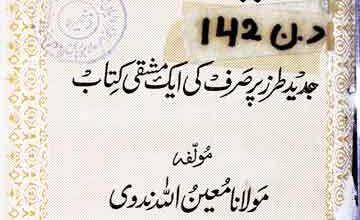 د.ن 142
جدید طرز پر صرف کی ایک مشقی کتاب
مولفہ
مولانا معین اللہ ندوی